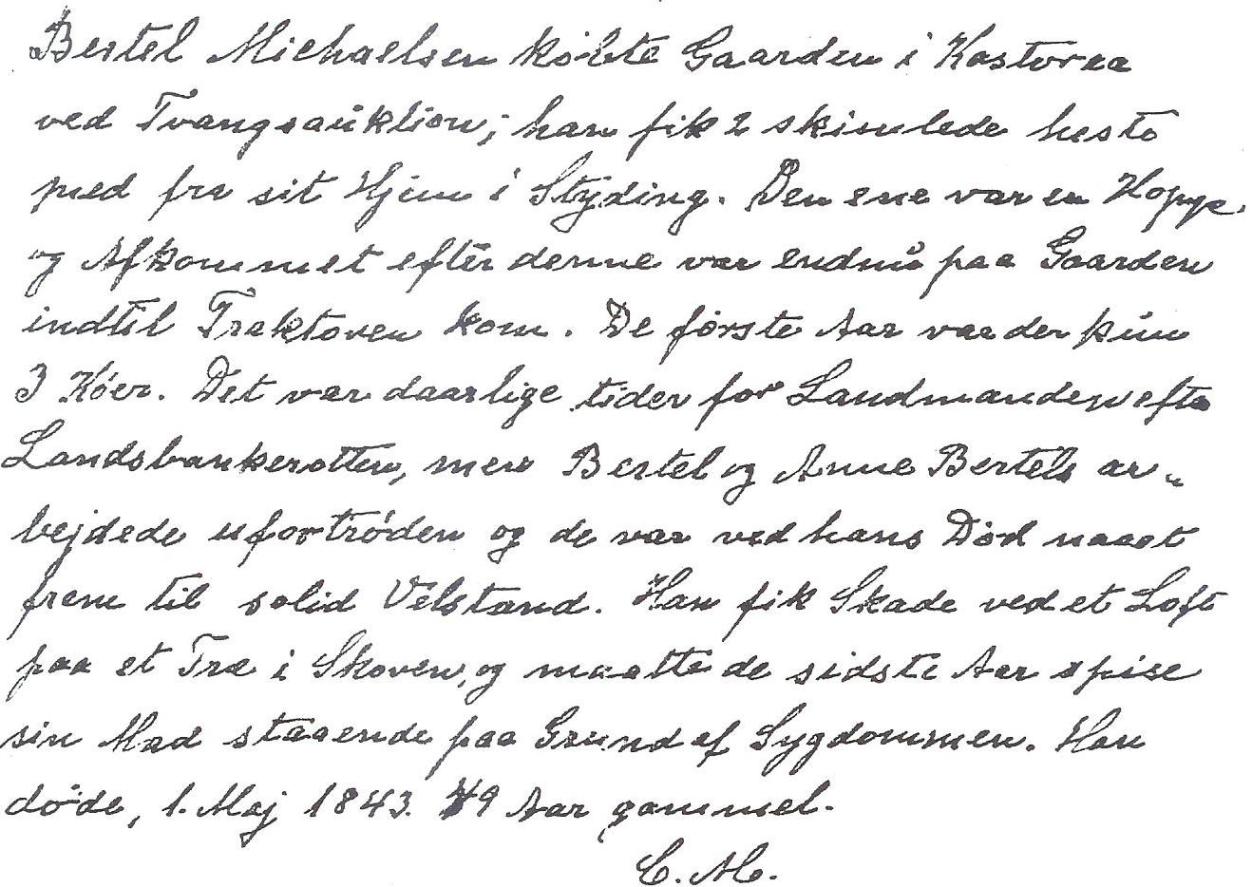 Bertel Michaelsen købte Gaarden i Kastvraa
ved Tvangsauktion; han fik 2 skimlede heste
med fra sit Hjem i Styding. Den ene var en Hoppe,
og Afkommet efter denne var endnu paa Gaarden
indtil Traktoren kom. De første Aar var der kun
3 Køer. Det var daarlige tider for Landmanden efte
Landsbankerotten, men Bertel og Anne Bertels ar„
bejdede ufortrøden og de var ved hans Død naaet
frem til solid Velstand. Han fik Skade ved et Løft
paa et Træ i Skoven, og maatte de sidste Aar spise
sin Mad staaende paa Grund af Sygdommen. Han
døde, 1. Maj 1843. 49 Aar gammel.
C. M.